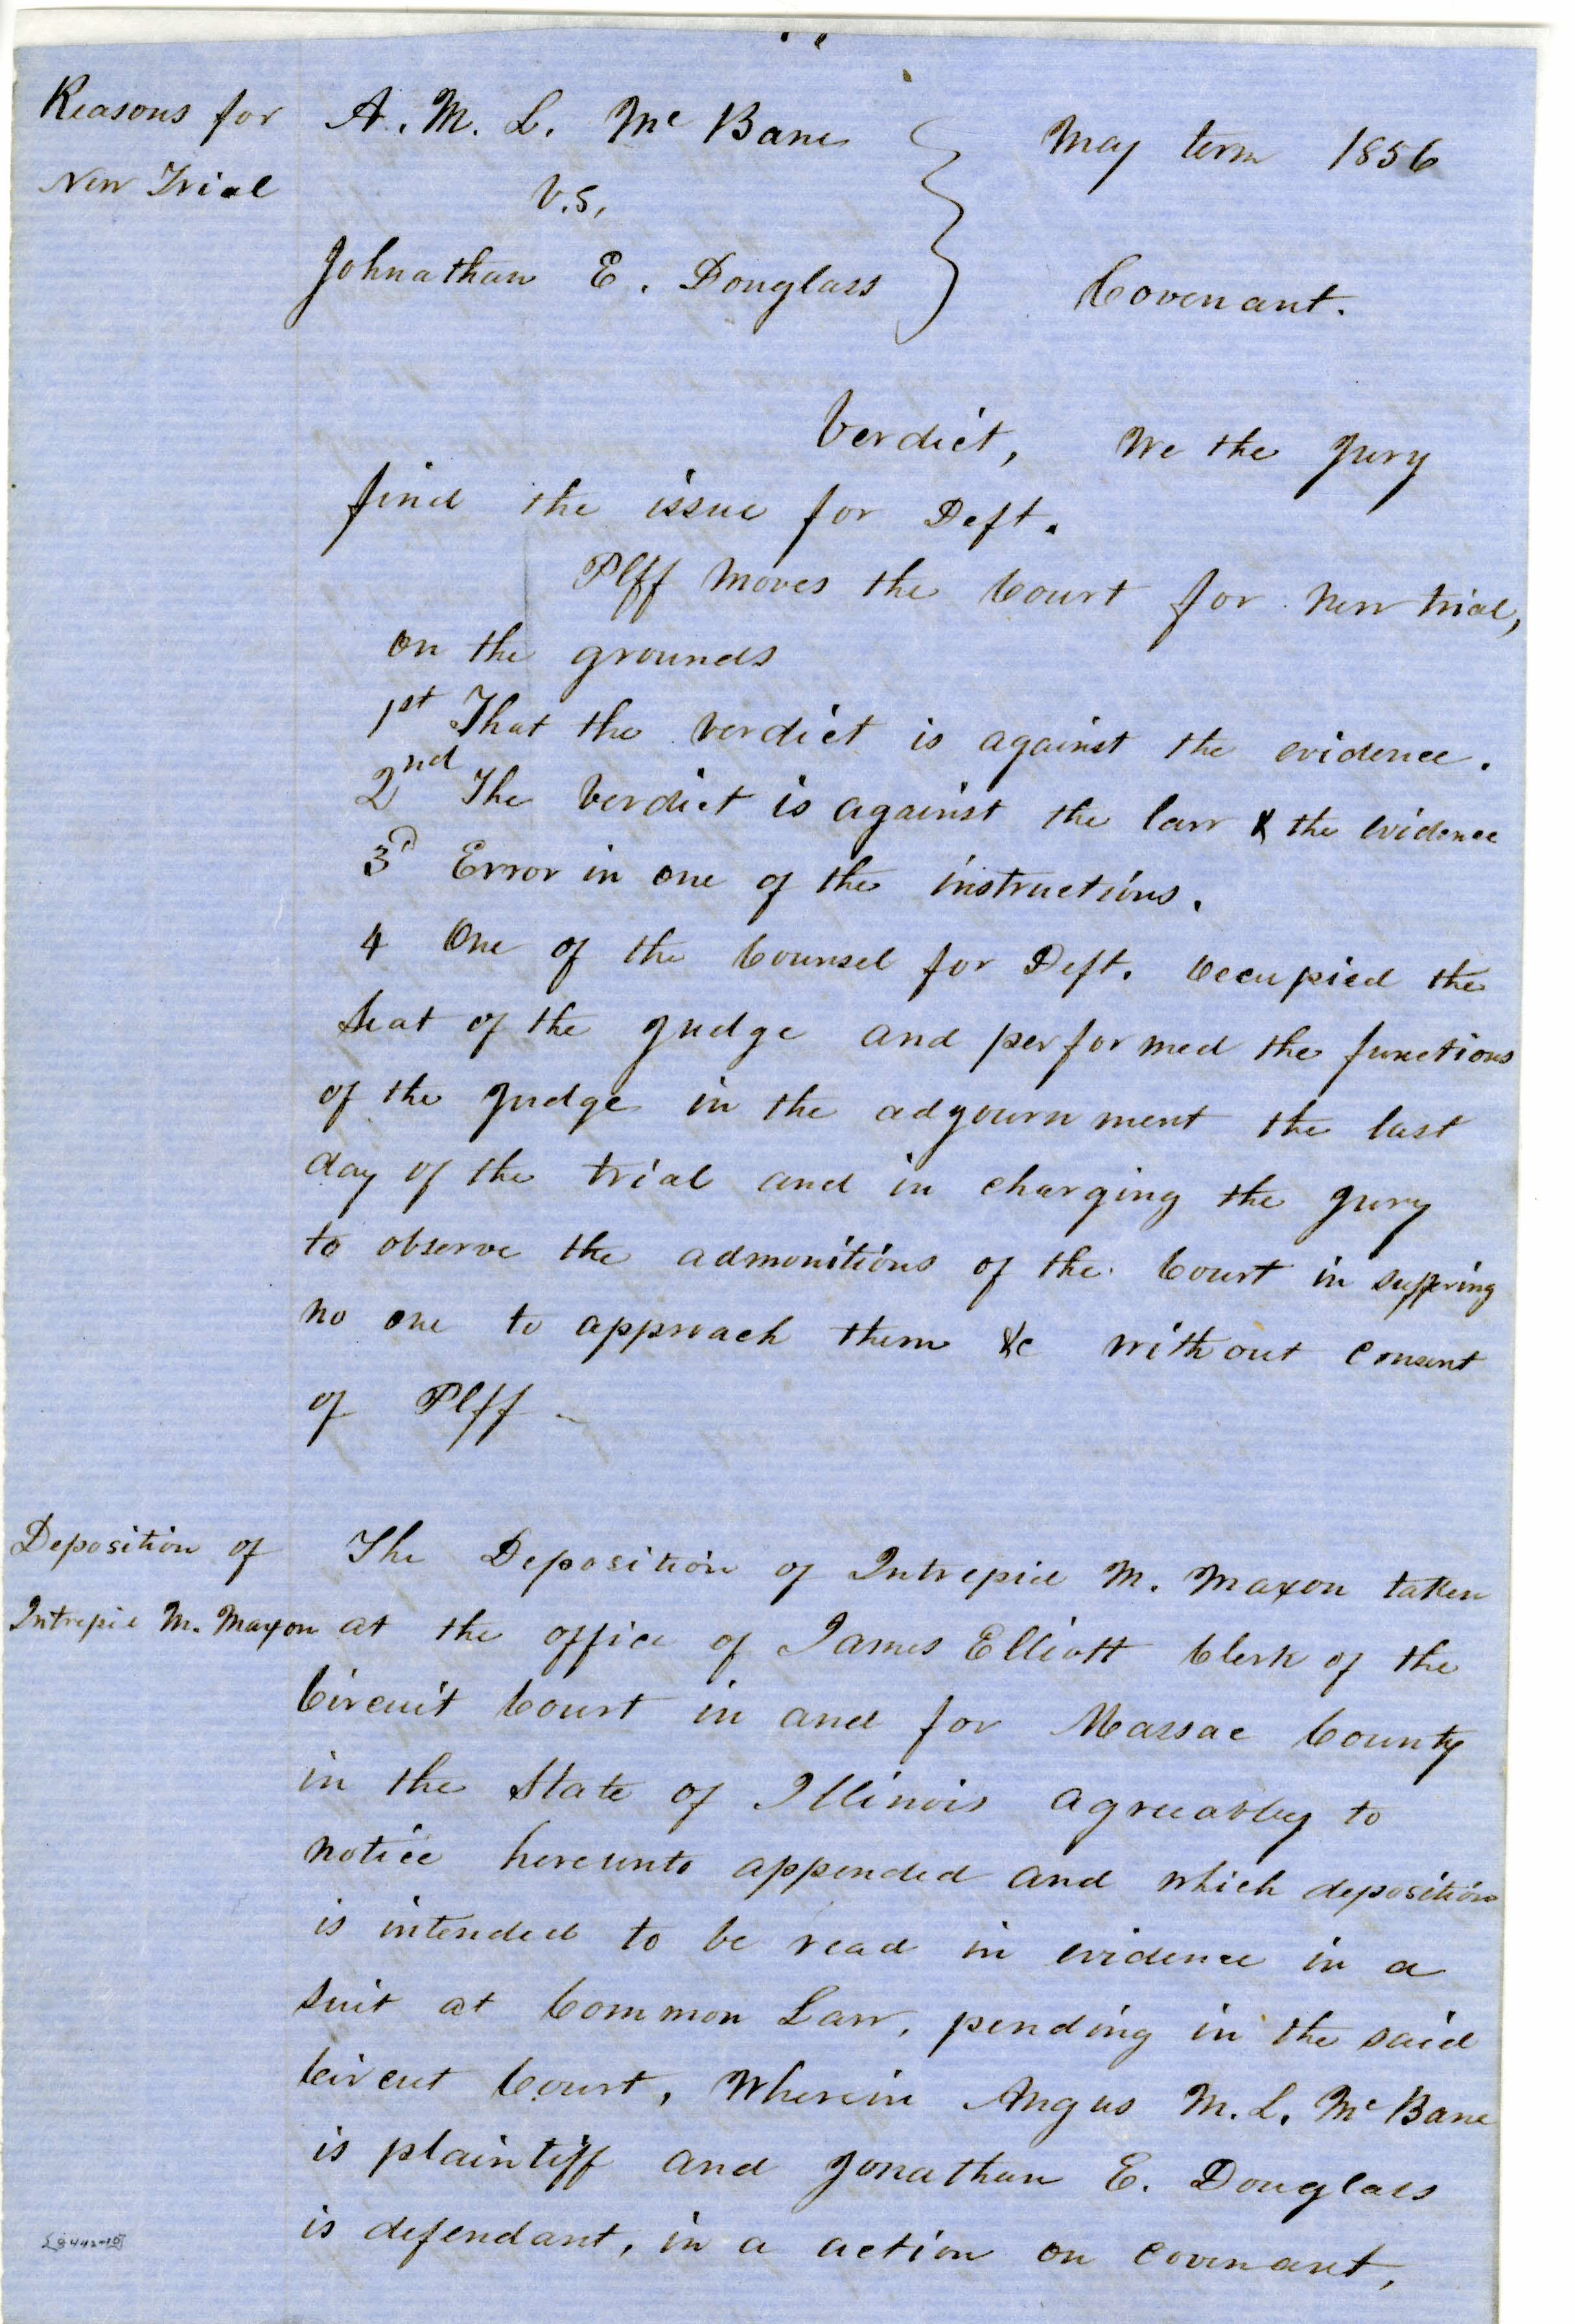 Reasons for
New Trial
A. M. L. Mc Bane
v.s,
Johnathan E. Douglass
May term 1856
Covenant.
Verdict, We the Jury
find the issue for Deft.
Plff moves the Court for new trial,
on the grounds
1st That the verdict is against the evidence.
2nd The verdict is against the law & the evidence
3d Error in one of the instructions.
4 One of the Counsel for Deft. occupied the
Seat of the Judge and performed the functions
of the Judge in the adjournment the last
day of the trial and in charging the Jury
to observe the admonitions of the Court in suffering
no one to approach them &c without consent
of Plff -
Deposition of
Intrepid M. Maxon
The Deposition of Intrepid M. Maxon taken
at the office of James Elliott Clerk of the
Circuit Court in and for Massac County
in the State of Illinois agreeabley to
notice hereunto appended and which deposition
is intended to be read in evidence in a
Suit at Common Law, pending in the said
Circut Court, Wherein Angus M. L. Mc Bane
is plaintiff and Jonathan E. Douglass
is defendant, in a action on covenant,